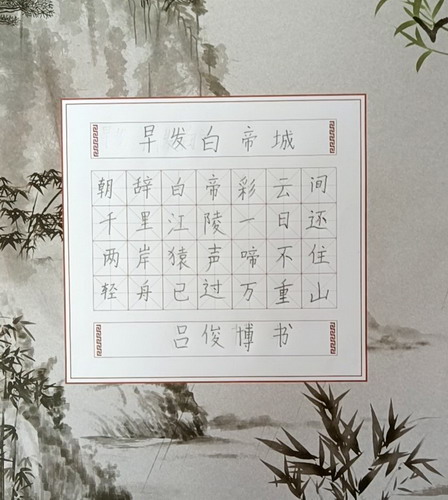 早发白帝城
朝辞白帝彩云间
千里江陵一日还
两岸猿声啼不住
轻舟已过万重山
吕俊博书